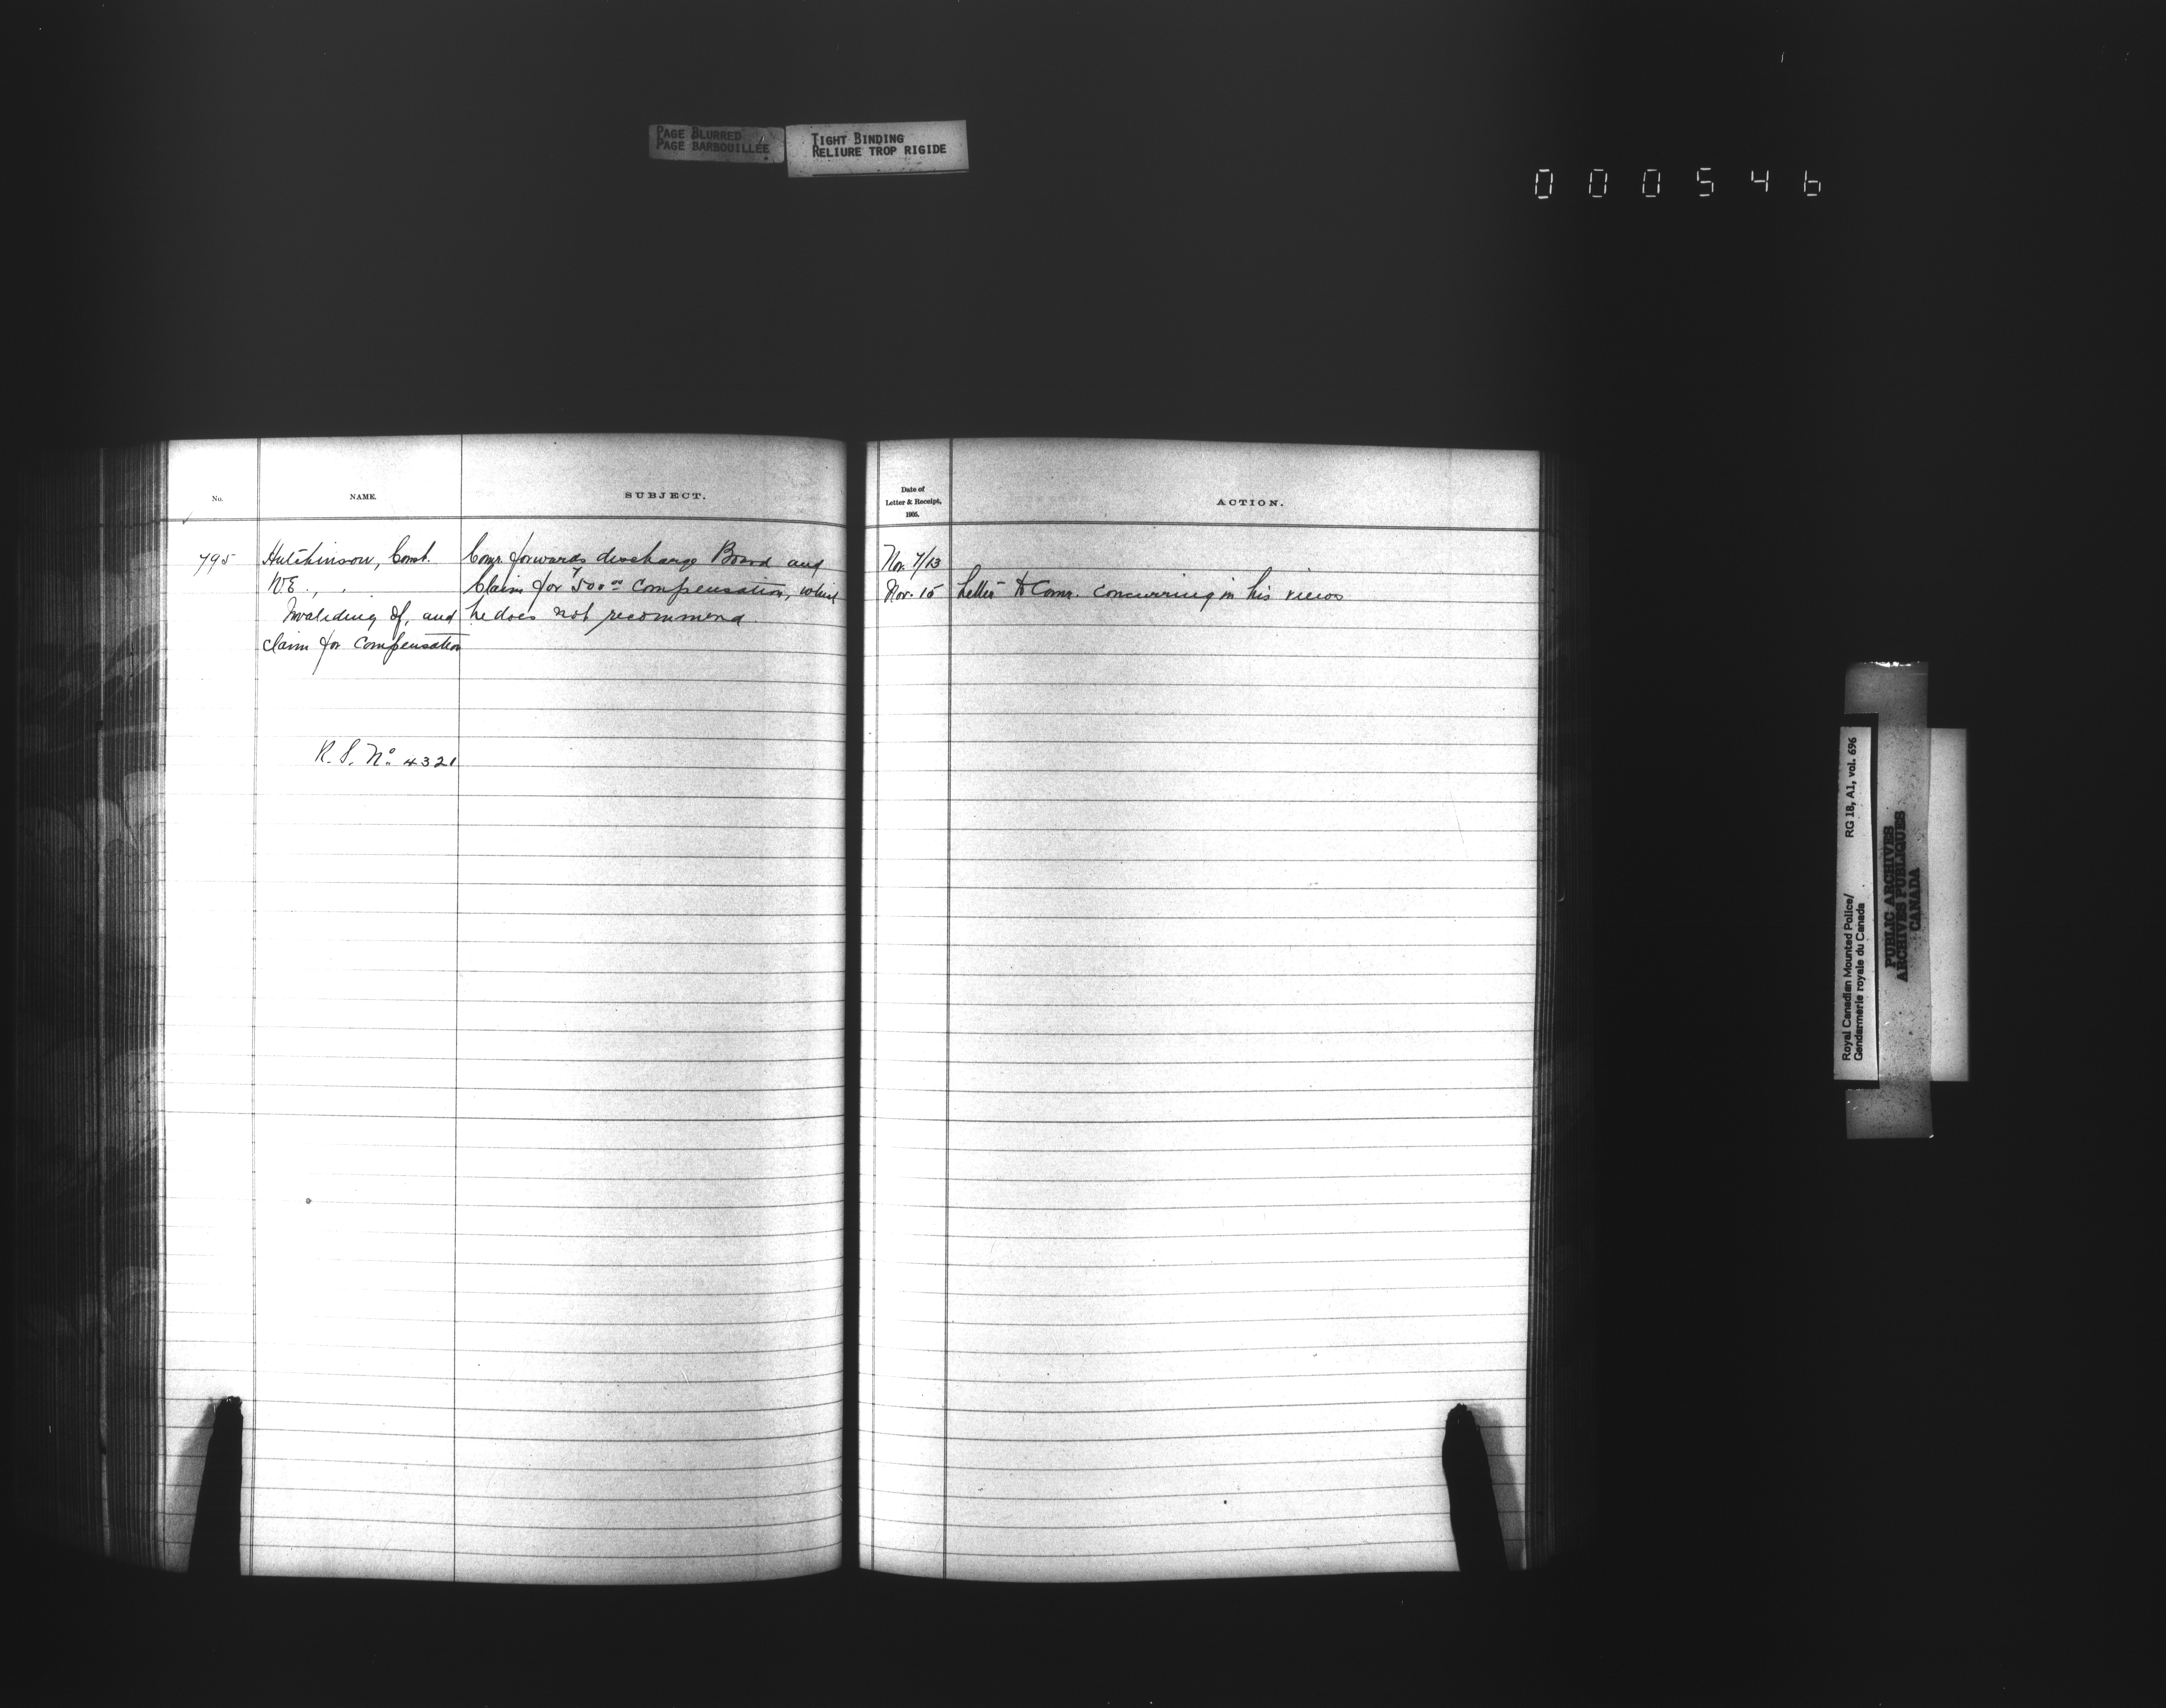 PAGE BLURRED
PAGE BARBOUILLÉE
TIGHT BINDING
RELIURE TROP RIGIDE
000546
No.
NAME.
SUBJECT.
Date of
Letter & Receipt,
1905.
ACTION.
795
Hutchinson, Const.
W.E.,
Invaliding of, and
claim for compensation
R.S. No. 4321
Comr. forwards discharge Board and
claim for $500.00 compensation, which
he does not recommend.
Nov. 7/13
Nov. 15
Letter to Comr. concurring in his views
Royal Canadian Mounted Police/
Gendarmerie royale du Canada
RG 18, A1, vol. 696
PUBLIC ARCHIVES
ARCHIVES PUBLIQUES
CANADA